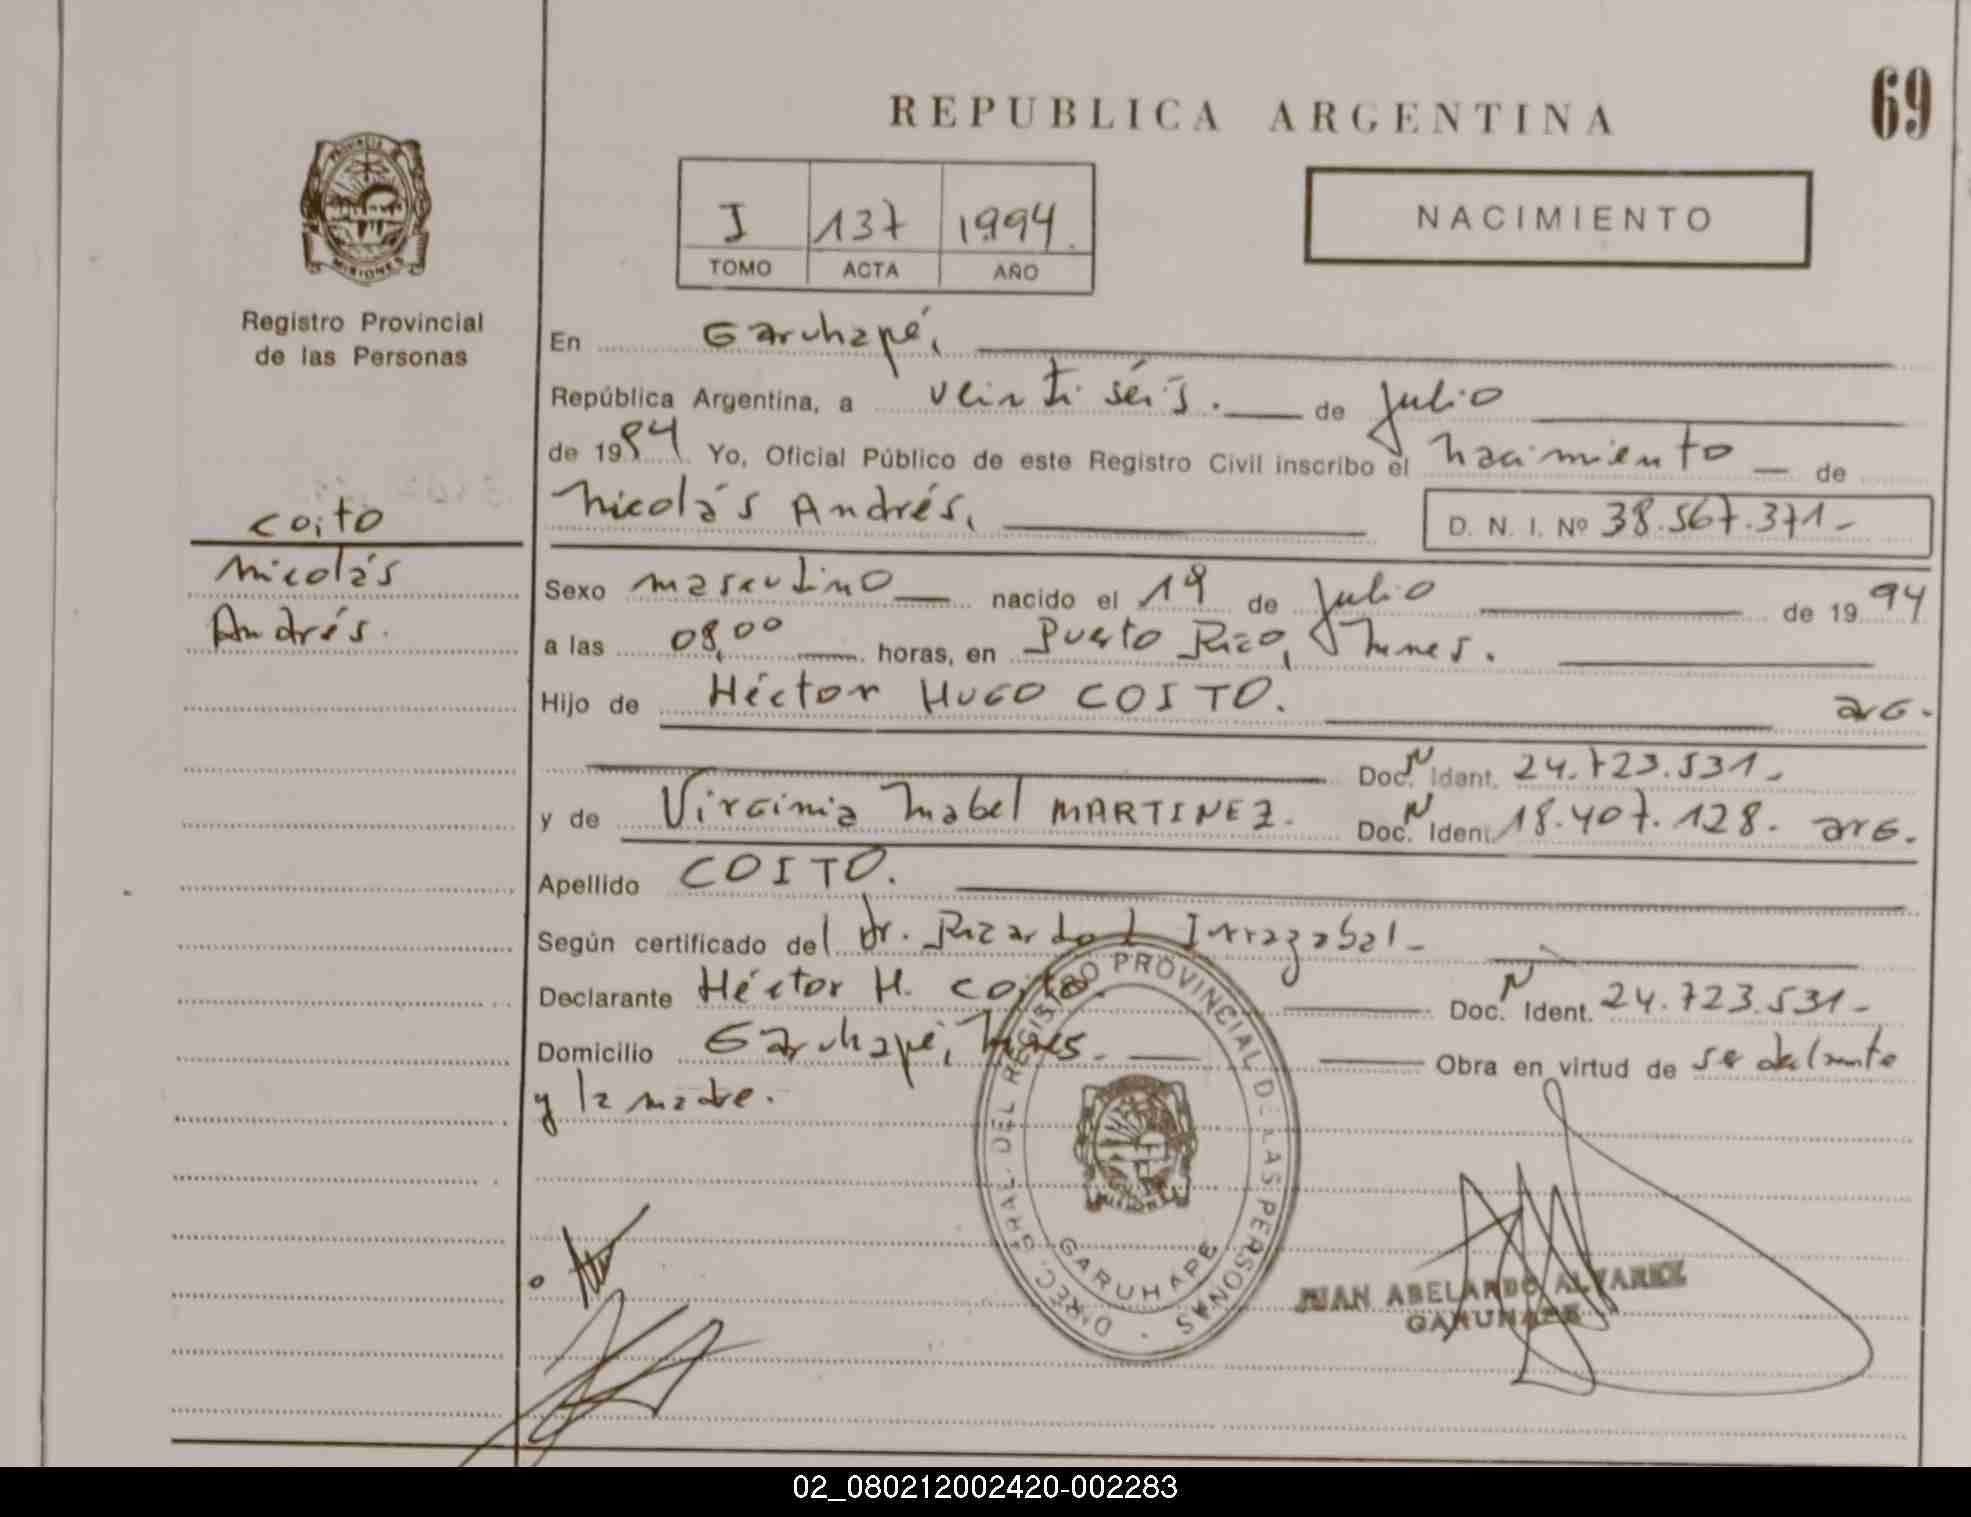 REPUBLICA ARGENTINA
69
PROVINCIA
MISIONES
Registro Provincial
de las Personas
I 137 1994.
TOMO ACTA AÑO
NACIMIENTO
En Garuhapé,
República Argentina, a veintiséis. de Julio
de 1994 Yo, Oficial Público de este Registro Civil inscribo el nacimiento de
Nicolás Andrés,
D. N. I. Nº 38.567.371-
Coito
Nicolás
Andrés.
Sexo masculino nacido el 19 de Julio de 19 94
a las 08,00 horas, en Puerto Rico, Mnes.
Hijo de Héctor Hugo COITO. arg.
Doc. N Ident. 24.723.531-
y de Virginia Mabel MARTINEZ. Doc. N Ident. 18.407.128. arg.
Apellido COITO.
Según certificado del Dr. Ricardo Irrazabal-
Declarante Héctor H. Coito. Doc. N Ident. 24.723.531-
Domicilio Garuhapé, Mnes. Obra en virtud de ser declarante
y la madre.
DIREC. GRAL. DEL REGISTRO PROVINCIAL DE LAS PERSONAS
MISIONES
GARUHAPE
JUAN ABELARDO ALVAREZ
GARUHAPE
02_080212002420-002283